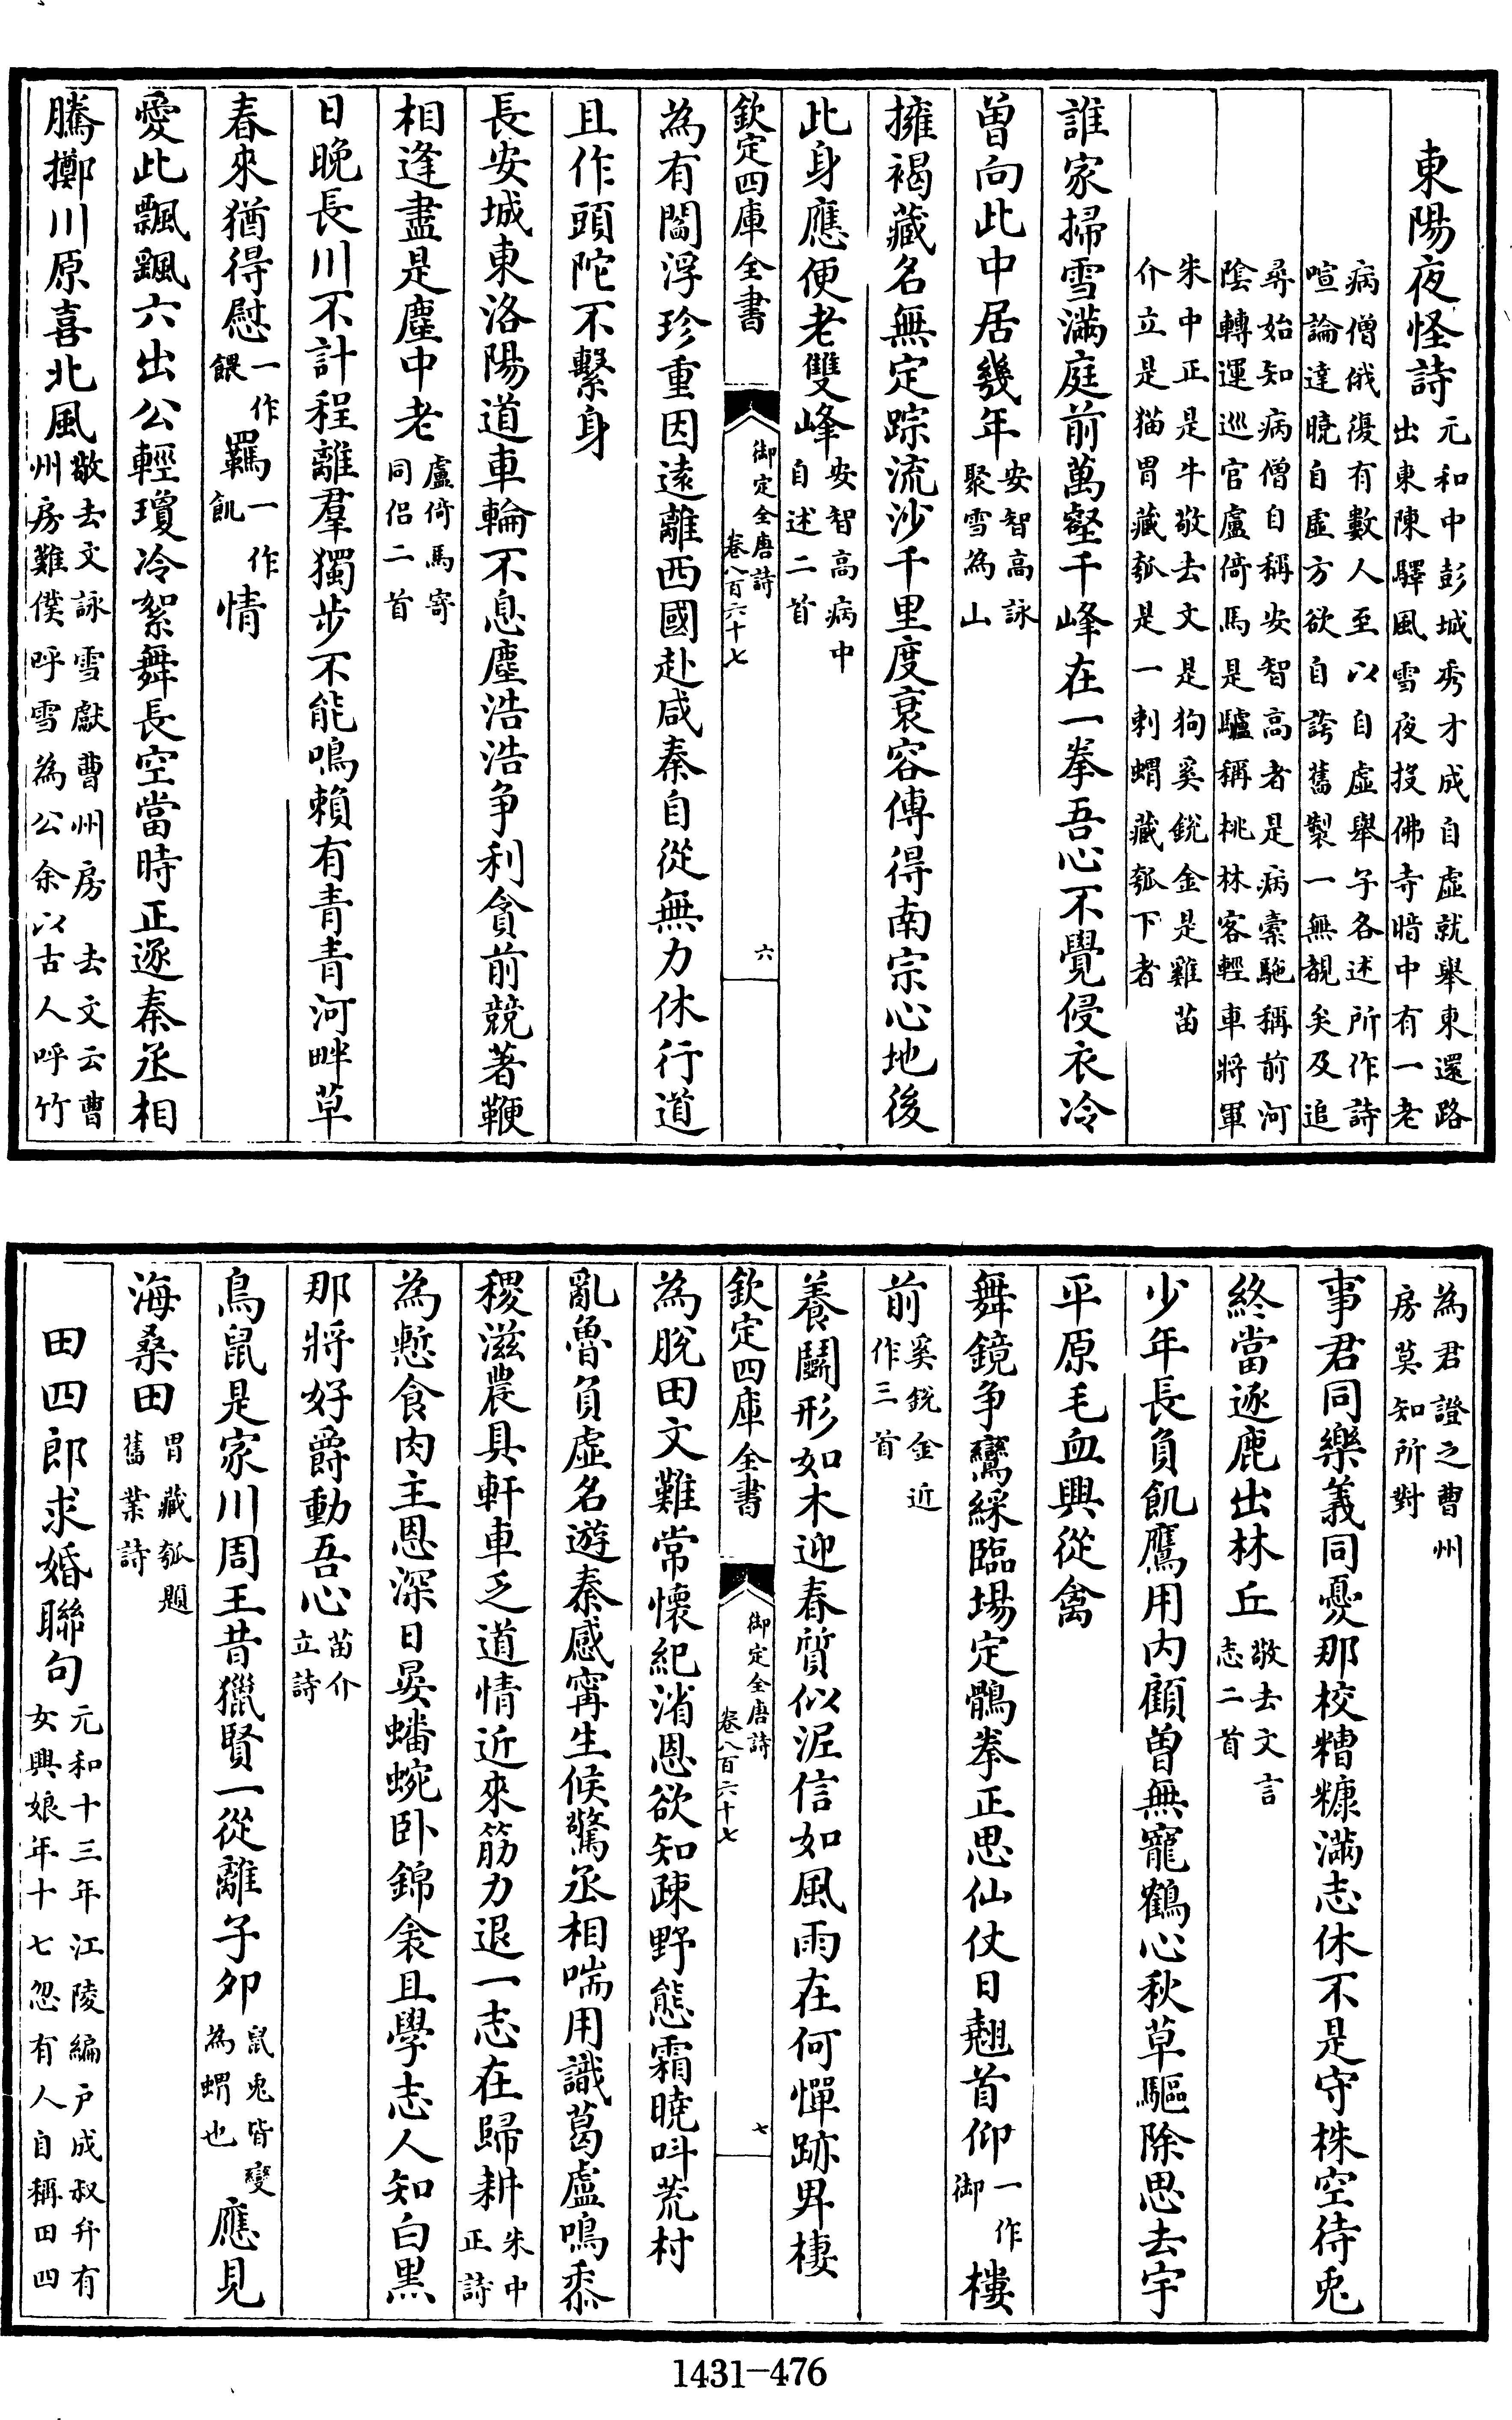 東陽夜怪詩元和中彭城秀才成自虛就舉東還路
出東陳驛風雪夜投佛寺暗中有一老
病僧俄復有數人至以自虛舉子各述所作詩
喧論達曉自虛方欲自誇舊製一無覩矣及追
尋始知病僧自稱安智高者是病橐駞稱前河
陰轉運巡官盧倚馬是驢稱桃林客輕車將軍
朱中正是牛敬去文是狗奚銳金是雞苗
介立是猫胃藏瓠是一刺蝟藏瓠下者
誰家掃雪滿庭前萬壑千峰在一拳吾心不覺侵衣冷
曾向此中居幾年安智高詠
聚雪為山
擁褐藏名無定踪流沙千里度衰容傳得南宗心地後
此身應便老雙峰安智高病中
自述二首
欽定四庫全書
御定全唐詩
卷八百六十七
六
為有閻浮珍重因遠離西國赴咸秦自從無力休行道
且作頭陀不繫身
長安城東洛陽道車輪不息塵浩浩争利貪前競著鞭
相逢盡是塵中老盧倚馬寄
同侶二首
日晚長川不計程離羣獨步不能鳴賴有青青河畔草
春來猶得慰一作
餵羈一作
飢情
愛此飄飖六出公輕瓊冷絮舞長空當時正逐秦丞相
騰擲川原喜北風敬去文詠雪獻曹州房　去文云曹
州房難僕呼雪為公余以古人呼竹
為君證之曹州
房莫知所對
事君同樂義同憂那校糟糠滿志休不是守株空待兎
終當逐鹿出林丘敬去文言
志二首
少年長負飢鷹用内顧曽無寵鶴心秋草驅除思去宇
平原毛血興從禽
舞鏡争鸞綵臨場定鶻拳正思仙仗日翹首仰一作
御樓
前奚銳金近
作三首
養鬭形如木迎春質似泥信如風雨在何憚跡畀棲
欽定四庫全書
御定全唐詩
卷八百六十七
七
為脫田文難常懷紀渻恩欲知疎野態霜曉呌荒村
亂魯負虛名遊秦感甯生候驚丞相喘用識葛盧鳴黍
稷滋農具軒車乏道情近來筋力退一志在歸耕朱中
正詩
為慙食肉主恩深日晏蟠蜿卧錦衾且學志人知白黑
那將好爵動吾心苗介
立詩
鳥鼠是家川周王昔獵賢一從離子夘鼠兎皆變
為蝟也應見
海桑田胃藏瓠題
舊業詩
田四郎求婚聯句元和十三年江陵編戸成叔弁有
女興娘年十七忽有人自稱田四
1431-476